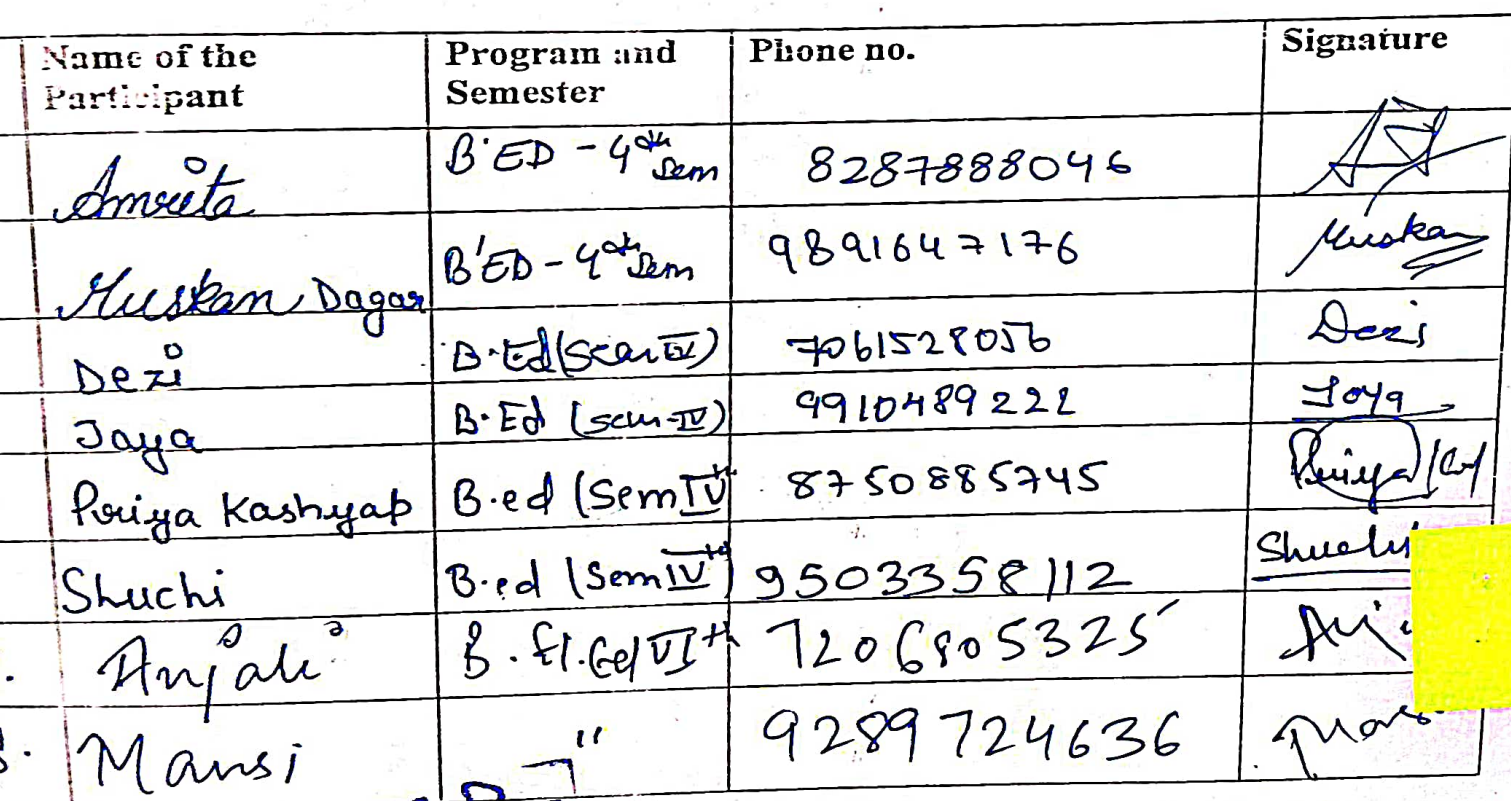 Name of the Participant Program and Semester Phone no. Signature
Amrita B.ED - 4th Sem 8287888046
Muskan Dagar B.ED - 4th Sem 9891647176 Muskan
Dezi B.Ed (Sem IV) 7061528056 Dezi
Jaya B.Ed (sem-IV) 9910489222 Jaya
Priya Kashyap B.ed (Sem IVth 8750885745 Priya
Shuchi B.ed (Sem IVth) 9503358112 Shuchi
Anjali B.El.Ed VIth 7206805325
Mansi " 9289724636